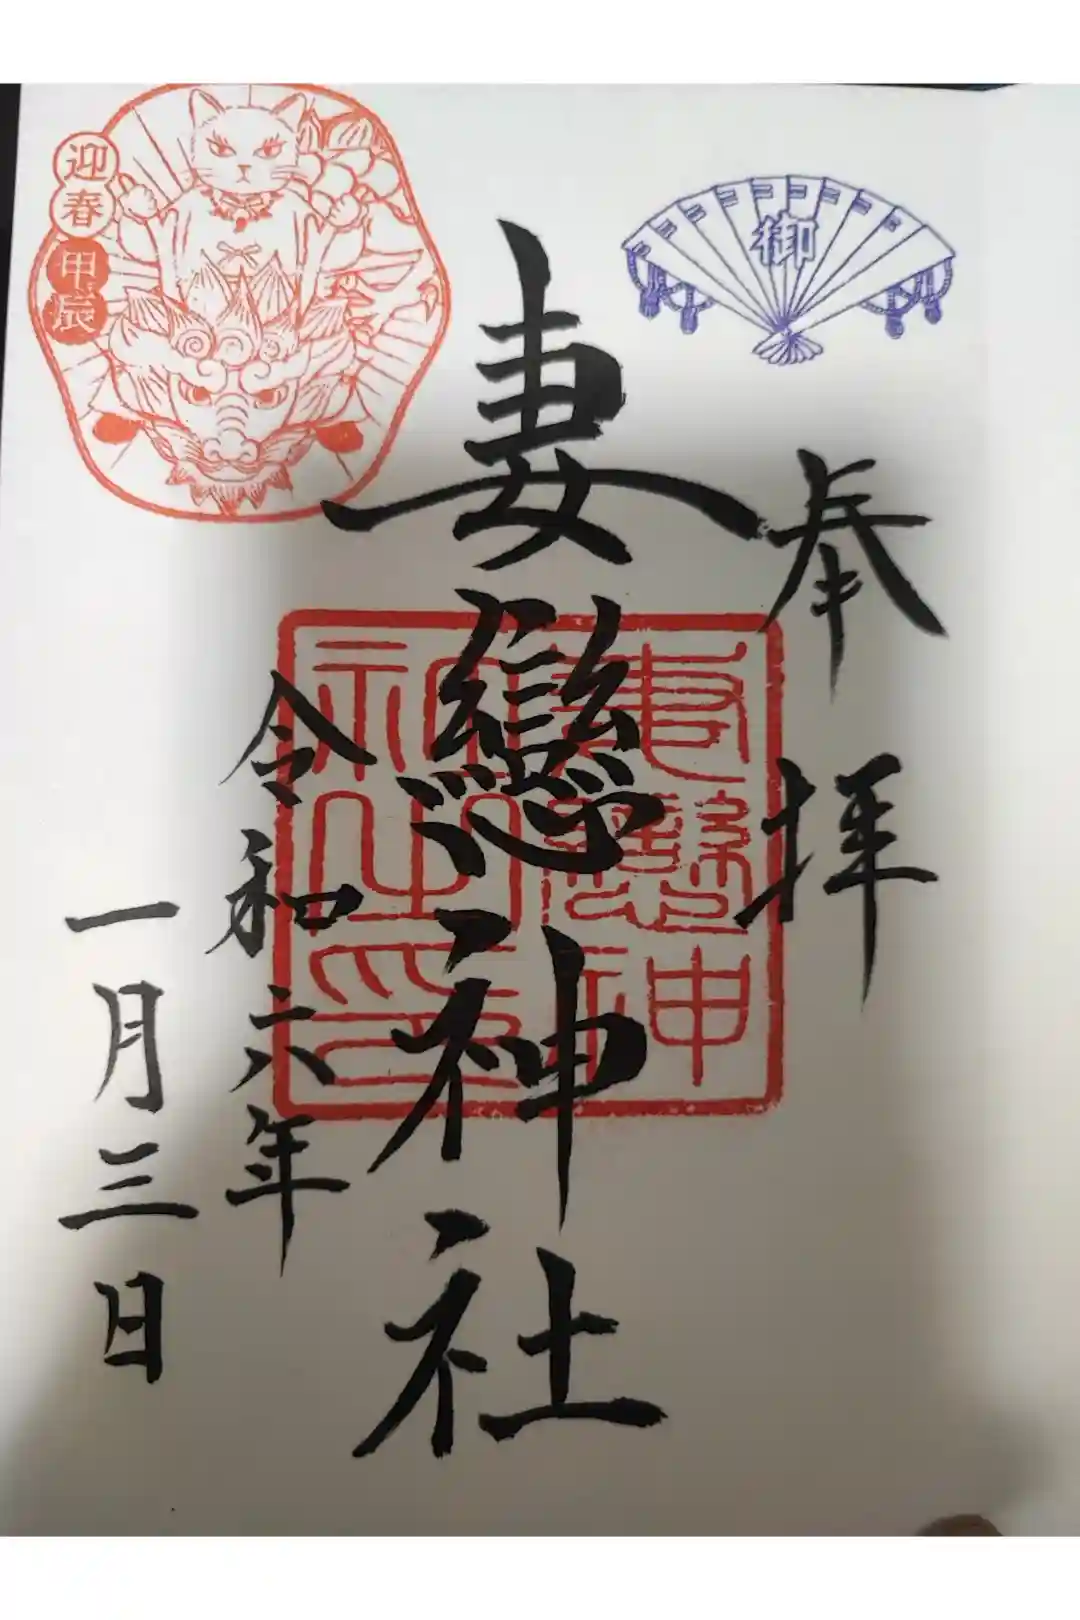 御
奉拝
妻戀神社
妻戀神
社之印
令和六年
一月三日
迎春
甲辰